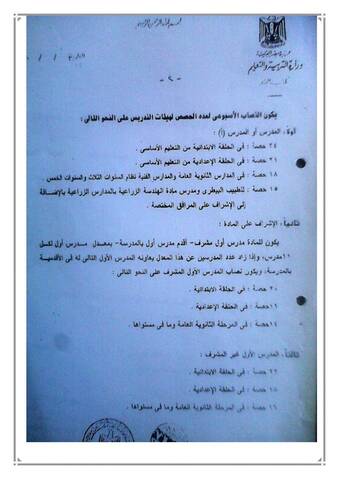 بسم الله الرحمن الرحيم
وزارة التربية والتعليم
- ٢ -
يكون النصاب الأسبوعى لعدد الحصص لهيئات التدريس على النحو التالى :
أولا: المدرس أو المدرس (أ) :
٢٤ حصة : فى الحلقة الابتدائية من التعليم الأساسى .
٢١ حصة : فى الحلقة الإعدادية من التعليم الأساسى .
١٨ حصة : فى المدارس الثانوية العامة والمدارس الفنية نظام السنوات الثلاث والسنوات الخمس .
١٥ حصة : للطبيب البيطرى ومدرس مادة الهندسة الزراعية بالمدارس الزراعية بالإضافة
إلى الإشراف على المرافق المختصة .
ثانيا: الإشراف على المادة :
يكون للمادة مدرس أول مشرف - أقدم مدرس أول بالمدرسة - بمعدل مدرس أول لكل
مدرس، وإذا زاد عدد المدرسين عن هذا المعدل يعاونه المدرس الأول التالى له فى الأقدمية
بالمدرسة، ويكون نصاب المدرس الأول المشرف على النحو التالى :
٢٠ حصة : فى الحلقة الابتدائية .
حصة : فى الحلقة الإعدادية .
١٤ حصة : فى المرحلة الثانوية العامة وما فى مستواها .
ثالثا: المدرس الأول غير المشرف :
٢٢ حصة : فى الحلقة الابتدائية .
حصة : فى الحلقة الإعدادية .
١٦ حصة : فى المرحلة الثانوية العامة وما فى مستواها .